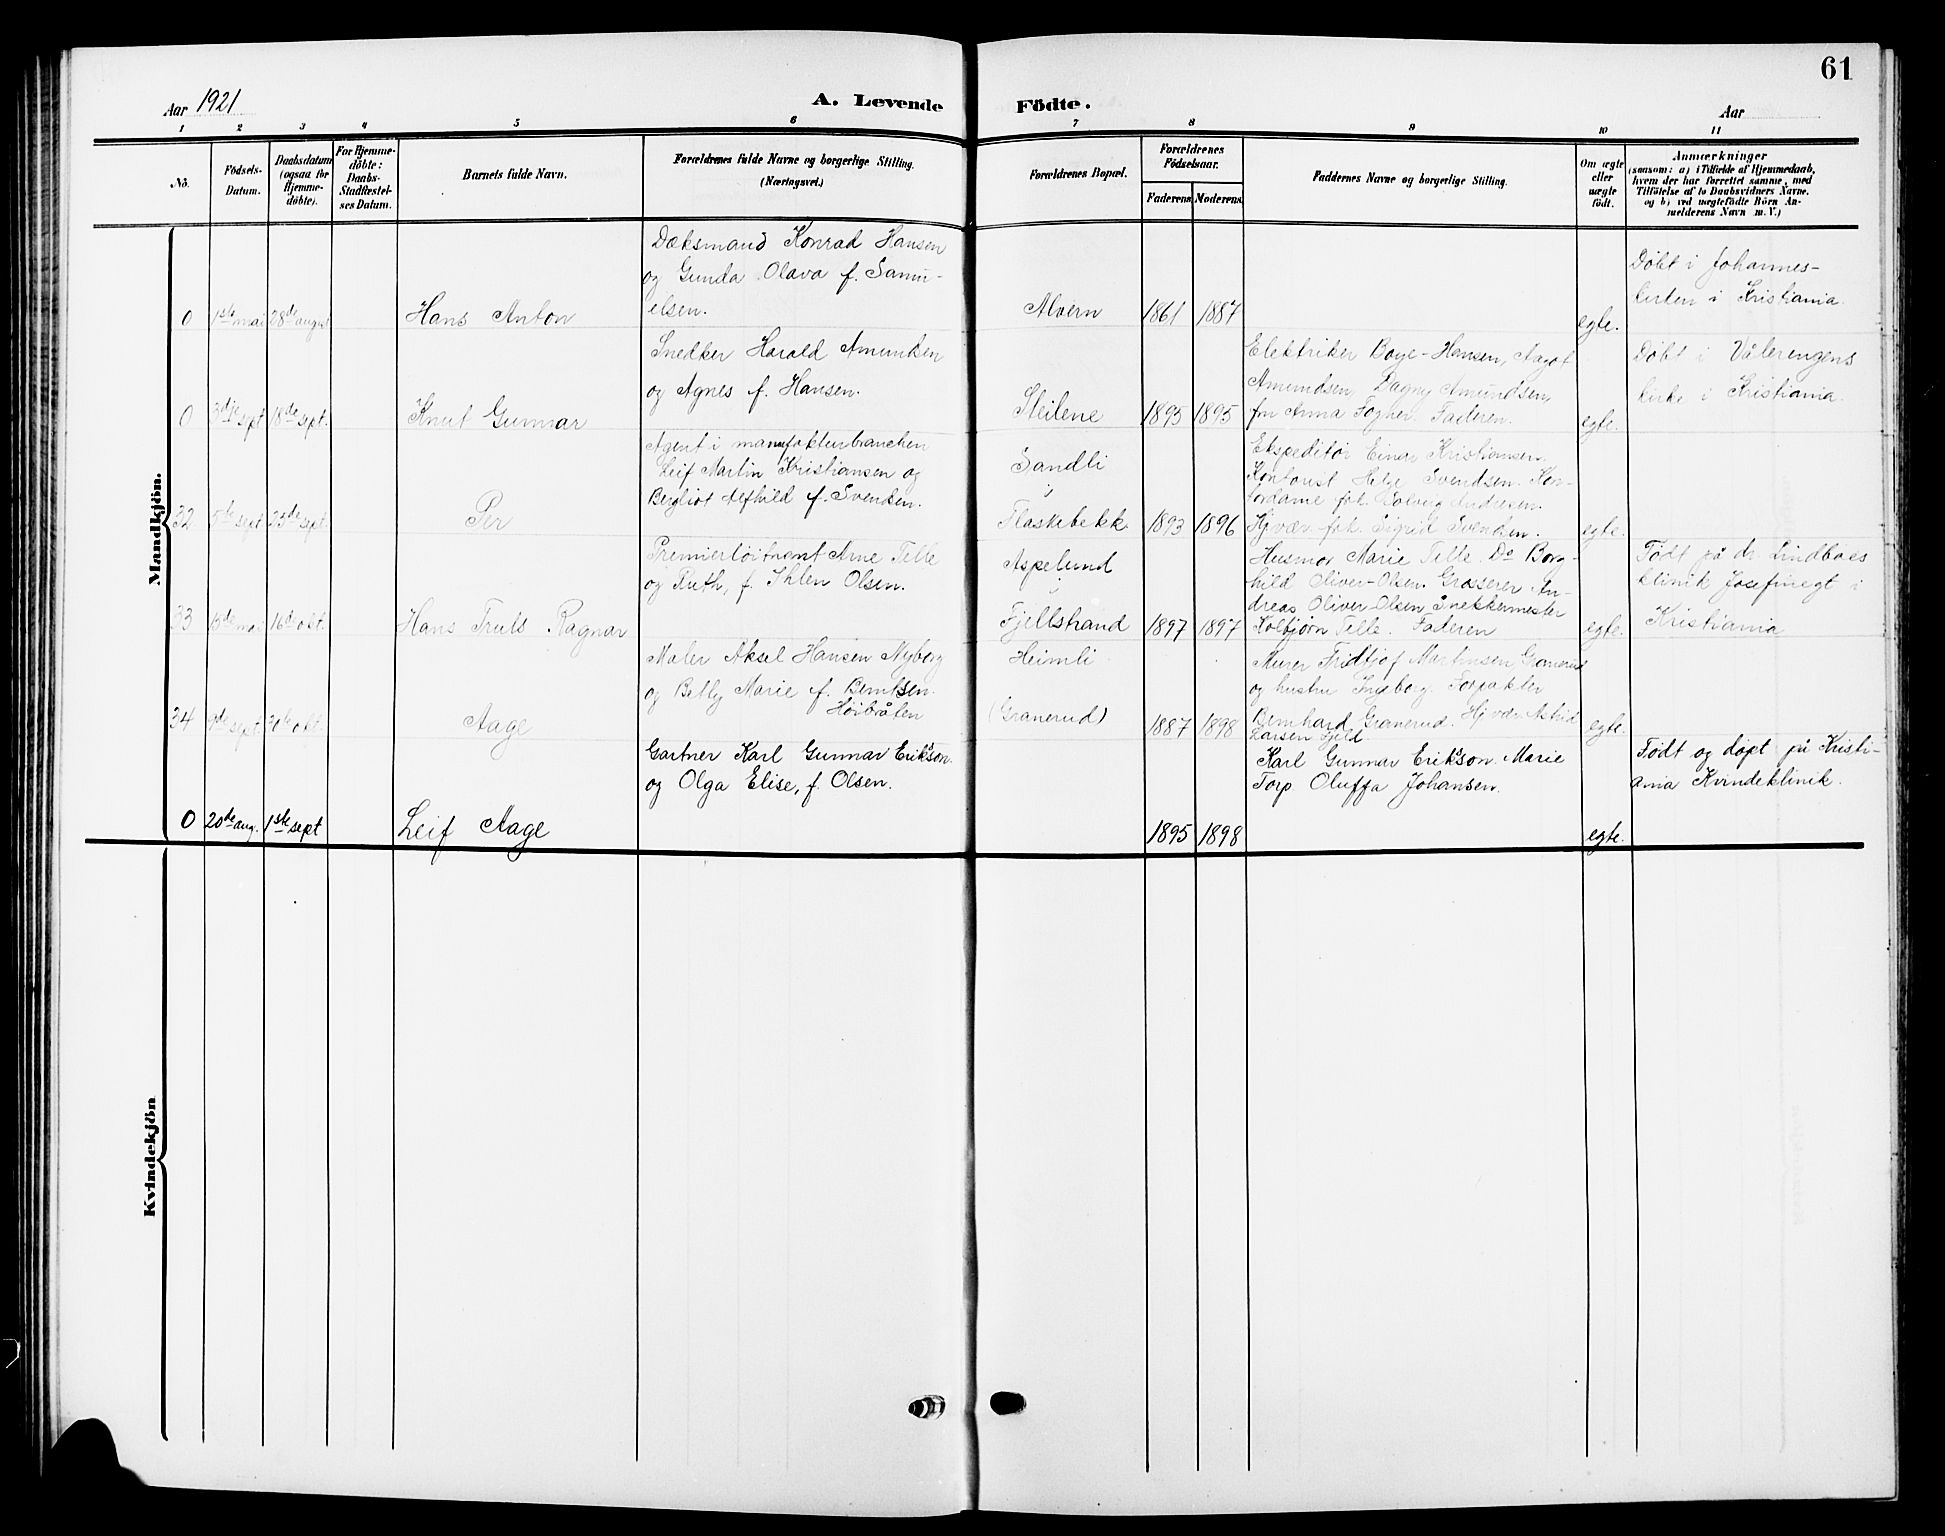 61
Aar 1921
A. Levende Födte.
Aar
1 2 3 4 5 6 7 8 9 10 11
No.
Födsels-Datum.
Daabsdatum (ogsaa for Hjemme-döbte).
For Hjemme-döbte: Daabs-Stadfæstel-ses Datum.
Barnets fulde Navn.
Forældrenes fulde Navne og borgerlige Stilling.
(Næringsvei.)
Forældrenes Bopæl.
Forældrenes Fødselsaar.
Faderens Moderens
Faddernes Navne og borgerlige Stilling.
Om ægte eller uægte födt.
Anmærkninger
(saasom: a) i Tilfælde af Hjemmedaab,
hvem der har forrettet samme, med
Tilföielse af to Daabsvidners Navne.
og b) ved uægtefödte Börn An-
melderens Navn m. V.)
Mandkjön.
0 1ste mai 28de august Hans Anton
Dæksmand Konrad Hansen
og Gunda Olava f. Samu-
elsen.
Alvern 1861 1887
egte.
Døbt i Johannes-
kirken i Kristiania.
0 3dje sept 18de sept. Knut Gunnar
Snedker Harald Amundsen
og Agnes f. Hansen.
Steilene 1895 1895
Elektriker Boye-Hansen, Aagot
Amundsen, Dagny Amundsen,
fru Anna Fogner. Faderen.
egte.
Døbt i Vålerengens
kirke i Kristiania.
32 5te sept 25de sept. Per
Agent i manufakturbranchen
Leif Martin Kristiansen og
Bergliot Alfhild f. Svendsen.
Sandli
i
Flaskebekk. 1893 1896
Ekspeditør Einar Kristiansen.
Kontorist Helge Svendsen. Kon-
tordame frk. Solveig Andresen.
Hjvær. frk. Sigrid Svendsen.
egte.
33 15de mai 16de okt. Hans Truls Ragnar
Premierløitnant Arne Telle
og Ruth, f. Ihlen Olsen.
Aspelund
i
Fjellstrand 1897 1897
Husmor Marie Telle. Do Borg-
hild Oliver-Olsen. Grosserer An-
dreas Oliver-Olsen Snekkermester
Kolbjørn Telle. Faderen
egte.
Født på dr. Lindboes
klinik Josefinegt i
Kristiania
34 9de sept. 30de okt. Aage
Maler Aksel Hansen Nyborg
og Betty Marie f. Berntsen.
Høibråten
Heimli
(Granerud) 1887 1898
Murer Fridtjof Martinsen Granerud
og hustru Ingeborg. Forpakter
Bernhard Granerud. Hjvær. Astrid
Larsen Fjeld
egte.
0 20de aug. 1ste sept Leif Aage
Gartner Karl Gunnar Erikson.
og Olga Elise, f. Olsen.
1895 1898
Karl Gunnar Erikson. Marie
Torp Oluffa Johansen.
egte.
Født og døpt på Kristi-
ania Kvindeklinik.
Kvindekjön